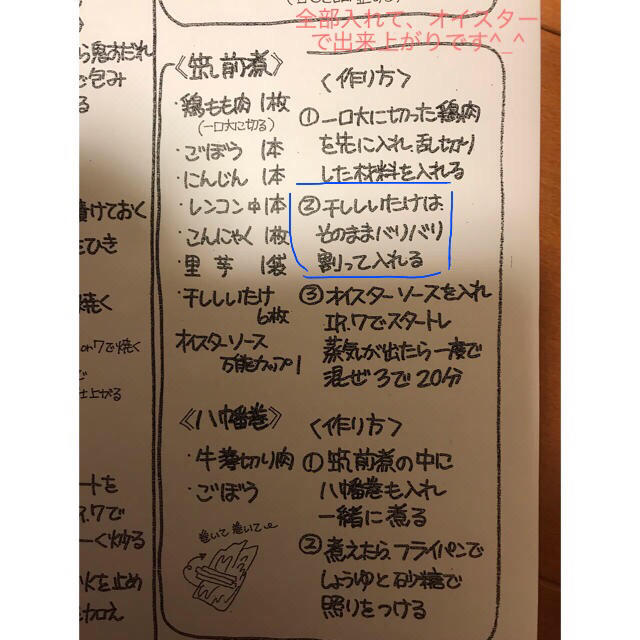 全部入れて、オイスター
で出来上がりです^_^
《筑前煮》
・鶏もも肉 1枚
(一口大に切る)
・ごぼう 1本
・にんじん 1本
・レンコン 中1本
・こんにゃく 1枚
・里芋 1袋
・干ししいたけ
6枚
オイスターソース
万能カップ1
〈作り方〉
①一口大に切った鶏肉
を先に入れ、乱切り
した材料を入れる
②干ししいたけは
そのままバリバリ
割って入れる
③オイスターソースを入れ
IR.7でスタートし
蒸気が出たら一度で
混ぜ3で20分
《八幡巻》
・牛薄切り肉
・ごぼう
巻いて巻いて
〈作り方〉
①筑前煮の中に
八幡巻も入れ
一緒に煮る
②煮えたら、フライパンで
しょうゆと砂糖で
照りをつける
で包み
る
けておく
をひき
焼く
7で焼く
で
仕上がる
ートを
7で
ーぐ炒る
火を止め
を加え